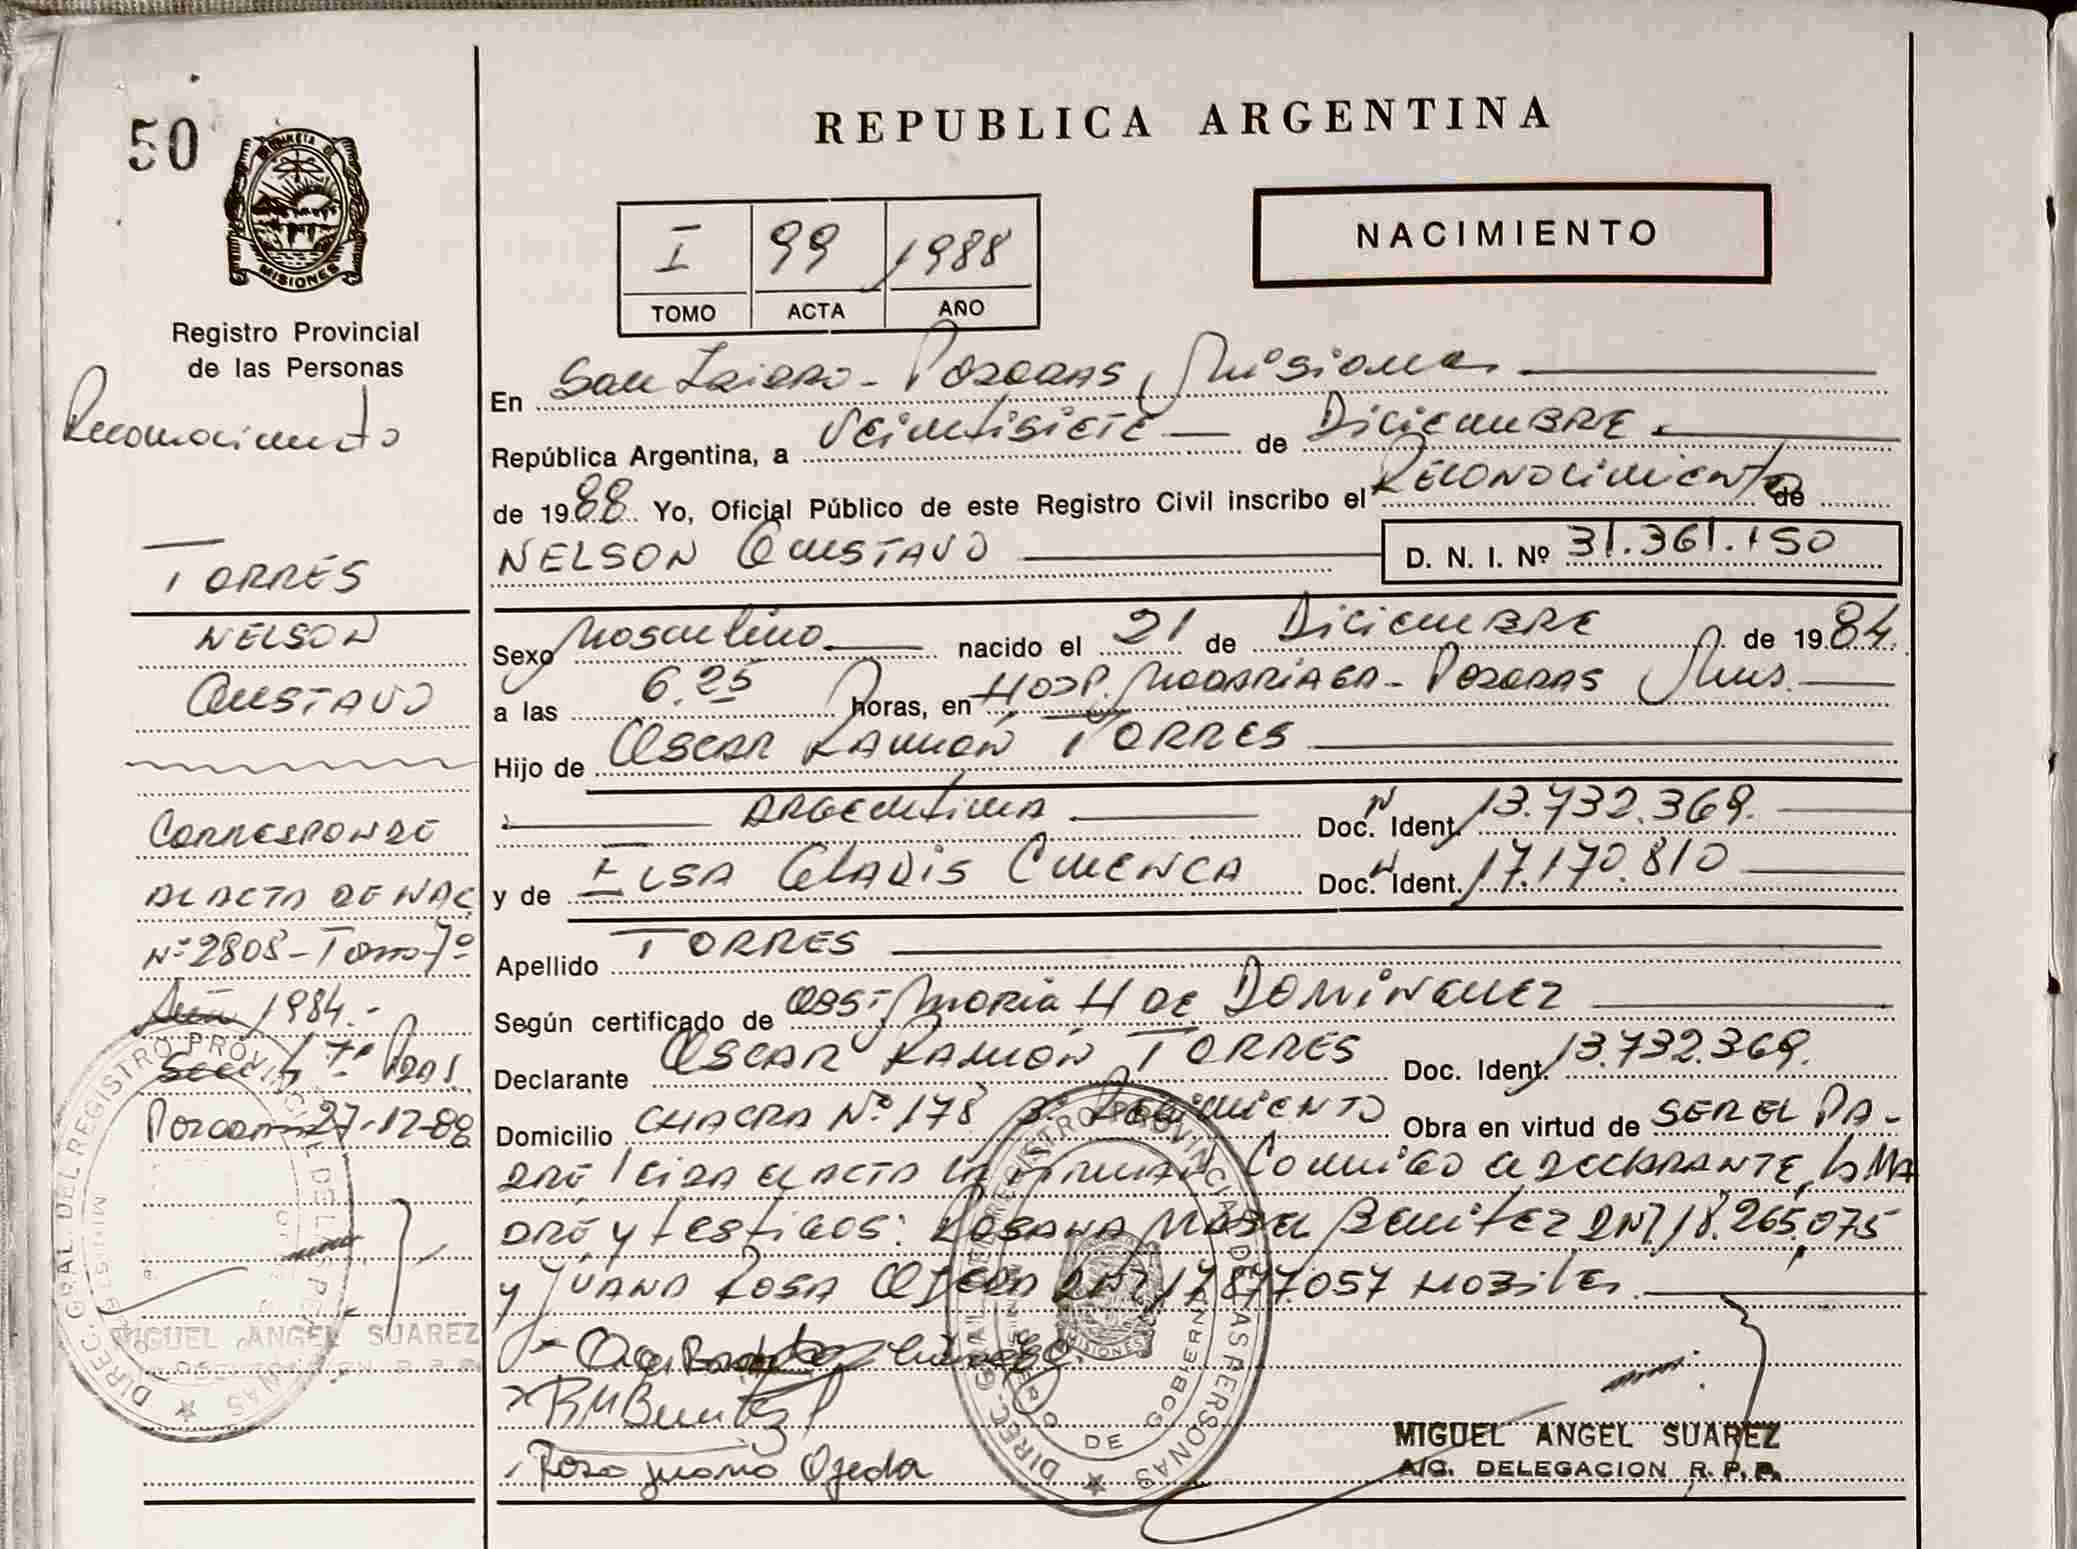 50
MISIONES
Registro Provincial
de las Personas
Reconocimiento
TORRES
NELSON
GUSTAVO
CORRESPONDE
AL ACTA DE NAC
Nº 2808 - Tomo 7º
Año 1984.-
Secc. 7ª Pdas.
Posadas 27-12-88
MIGUEL ANGEL SUAREZ
REPUBLICA ARGENTINA
I 99 1988
TOMO ACTA AÑO
NACIMIENTO
En San Isidro - Posadas, Misiones
República Argentina, a Veintisiete de Diciembre
de 1988 Yo, Oficial Público de este Registro Civil inscribo el Reconocimiento de
NELSON GUSTAVO D. N. I. Nº 31.361.150
Sexo Masculino nacido el 21 de Diciembre de 1984.
a las 6.25 horas, en Hosp. Madariaga - Posadas Mns.
Hijo de OSCAR RAMÓN TORRES
ARGENTINA Doc. N Ident. 13.732.369.
y de ELSA GLADIS CUENCA Doc. N Ident. 17.170.810
Apellido TORRES
Según certificado de Obst. María H DE DOMINGUEZ
Declarante OSCAR RAMÓN TORRES Doc. Ident. 13.732.369.
Domicilio CHACRA Nº 178 Obra en virtud de SER EL PA-
DRE leida el acta la firman Conmigo el declarante, la MA
DRE y testigos: ROSANA MABEL Benitez DNI 18.265.075
y JUANA ROSA OJEDA DNI 17.877.057 Hábiles.
RMBenitez
Rosa Juana Ojeda
DIREC. GRAL. DEL REGISTRO PROVINCIAL DE LAS PERSONAS
MINISTERIO DE GOBIERNO
MISIONES
MIGUEL ANGEL SUAREZ
A/C. DELEGACION R. P. P.